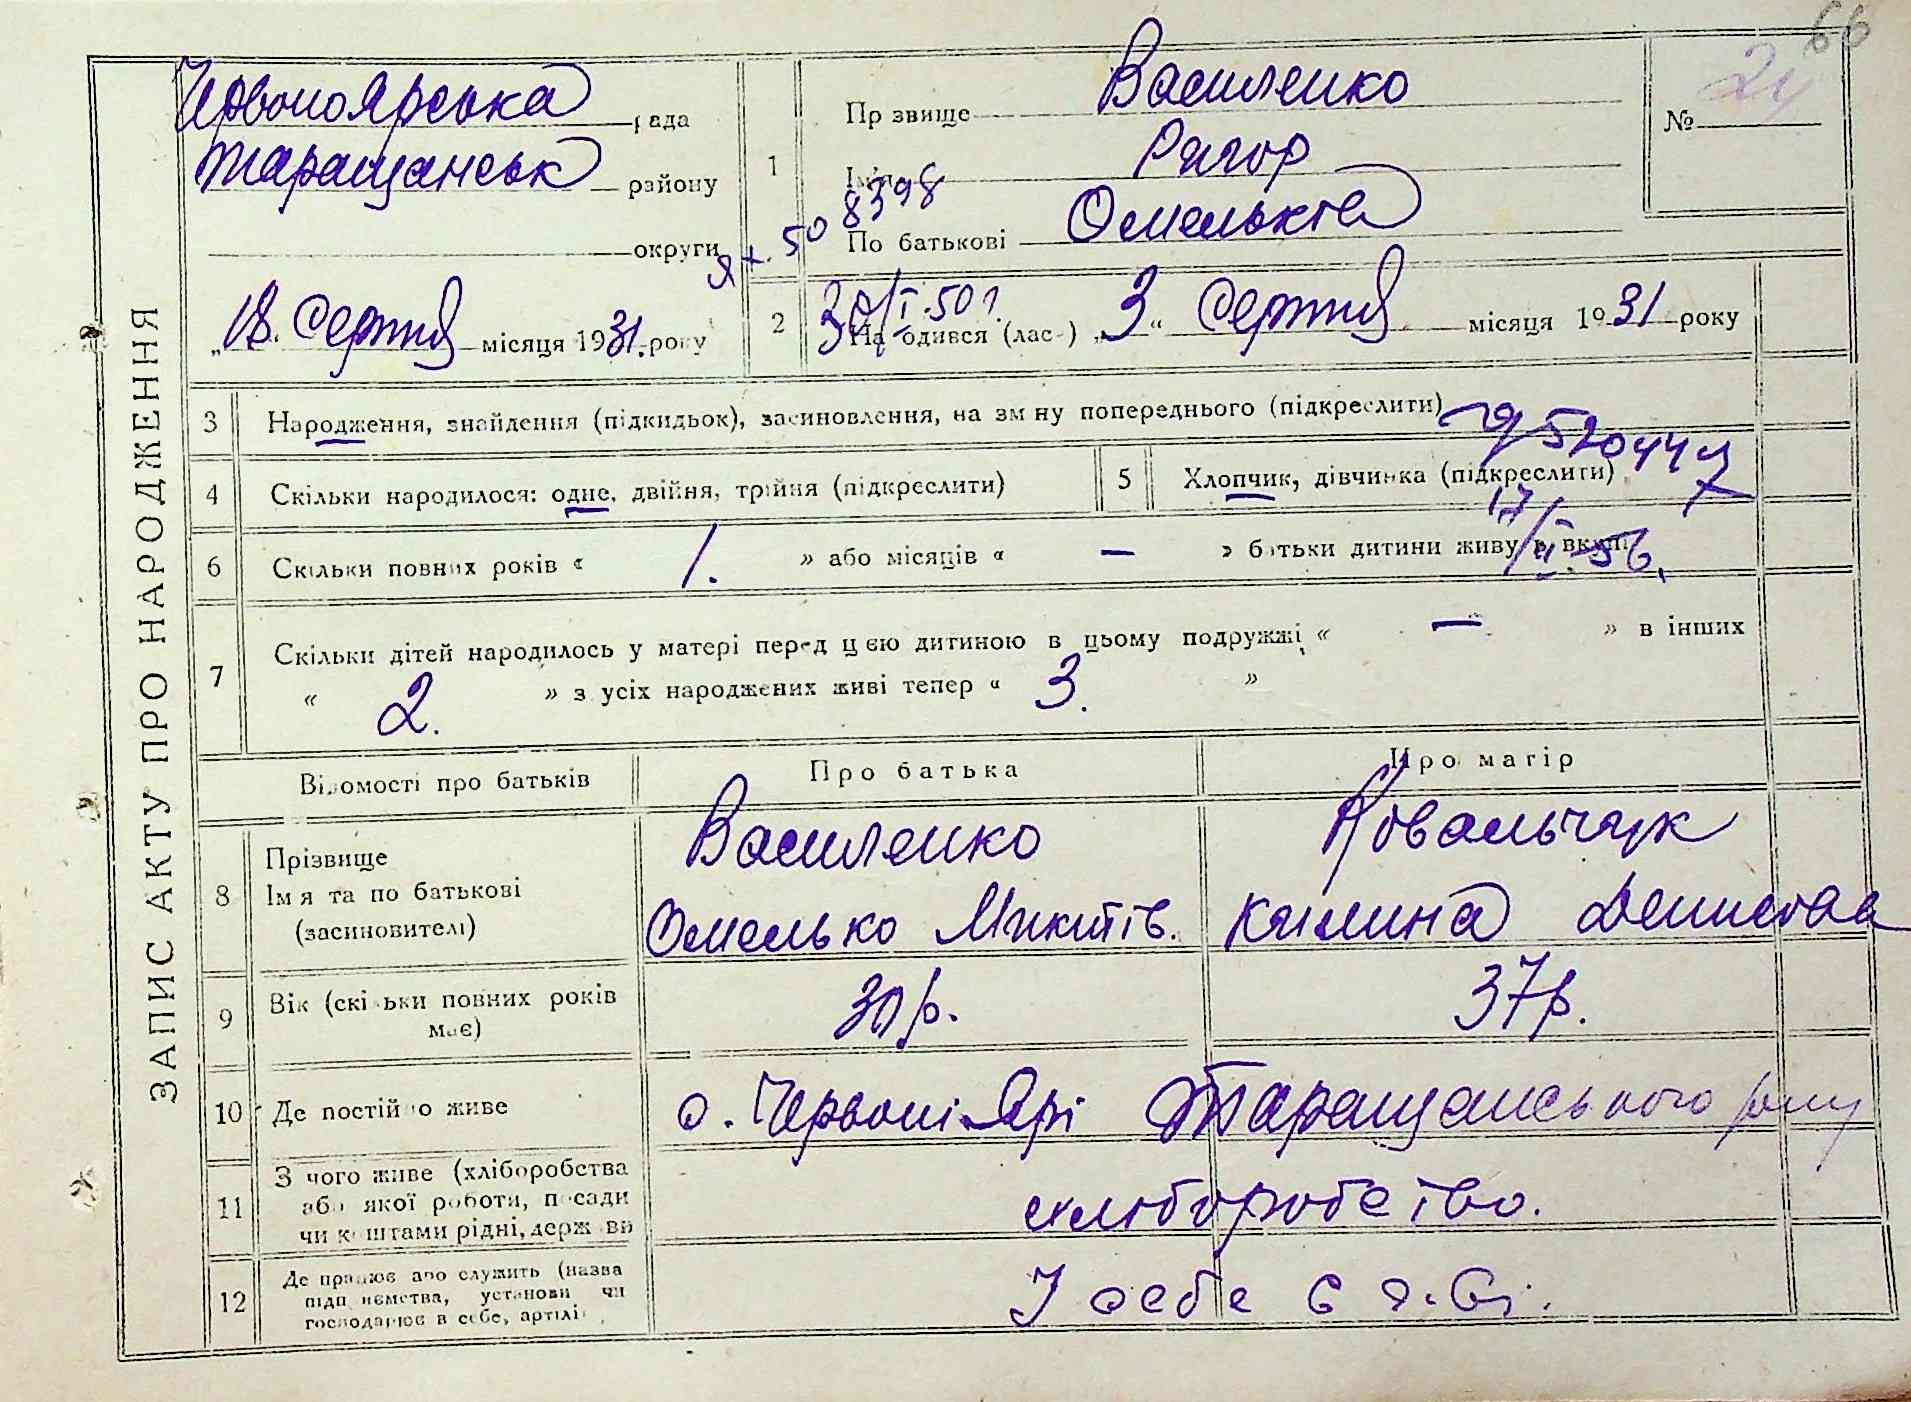 66
ЗАПИС АКТУ ПРО НАРОДЖЕННЯ
Червоноярська рада
Таращанськ району
округи
„18." Серпня місяця 1931. року
1
Прізвище Василенко
Ім'я
По батькові Омельків
№ 24
ЯХ. 508398
30/I-50 г.
2
Народився (лась) „3" Серпня місяця 1931 року
3 Народження, знайдення (підкидьок), засиновлення, на зміну попереднього (підкреслити)
4 Скільки народилося: одне, двійня, трійня (підкреслити)
5 Хлопчик, дівчинка (підкреслити)
17/II-56.
6 Скільки повних років « 1. » або місяців « — » батьки дитини живуть вкупі
7 Скільки дітей народилось у матері перед цією дитиною в цьому подружжі « — » в інших
« 2. » з усіх народжених живі тепер « 3. »
Відомості про батьків
Про батька
Про матір
8 Прізвище
Ім'я та по батькові
(засиновителі)
Василенко
Омелько Микитів.
Ковальчук
Килина Денисова
9 Вік (скільки повних років
має)
30 р.
37 р.
10 Де постійно живе
с. Червоні Ярі Таращанського р-ну
11 З чого живе (хліборобства
або якої роботи, посади
чи коштами рідні, держави
хлюборобство.
12 Де працює або служить (назва
підприємства, установи чи
господарює в себе, артілі
У себе в